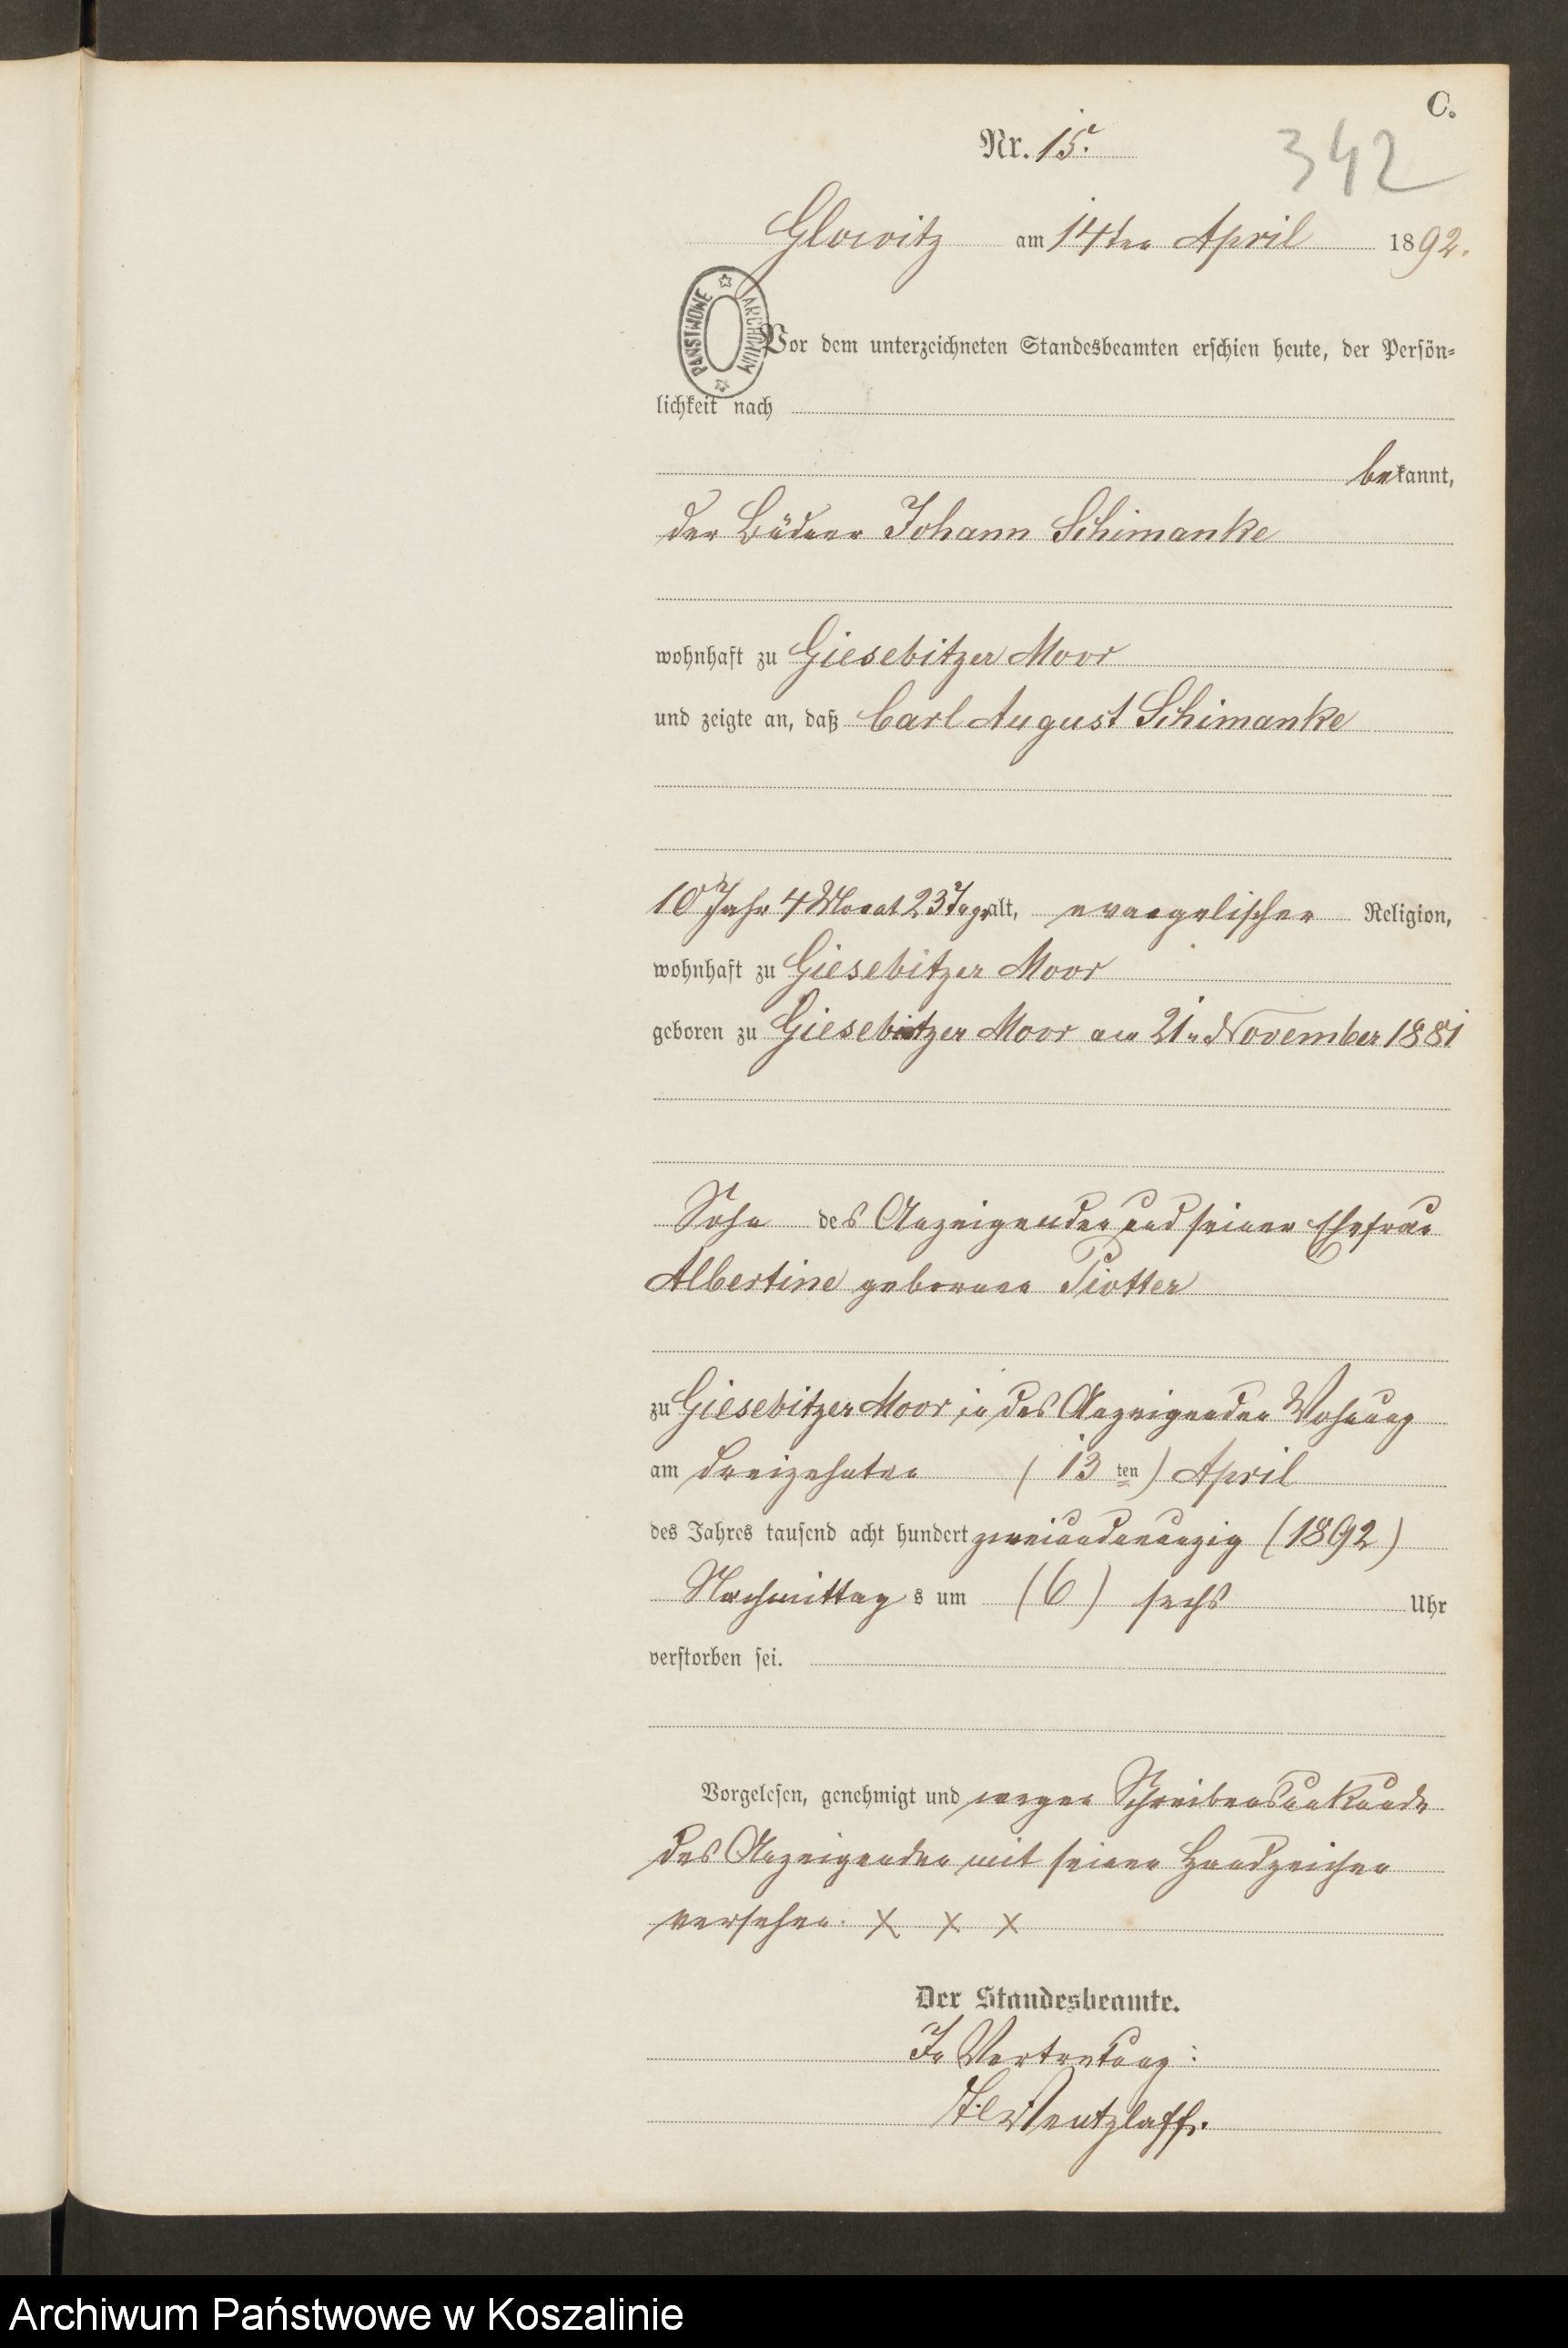 C.
Nr. 15.
342
Glowitz am 14ten April 1892.
PAŃSTWOWE ARCHIWUM
Vor dem unterzeichneten Standesbeamten erschien heute, der Persön-
lichkeit nach
bekannt,
der Büdner Johann Schimanke
wohnhaft zu Giesebitzer Moor
und zeigte an, daß Carl August Schimanke
10 Jahr 4 Monat 23 Tage alt, evangelischer Religion,
wohnhaft zu Giesebitzer Moor
geboren zu Giesebitzer Moor am 21. November 1881
Sohn des Anzeigenden und seiner Ehefrau
Albertine geborenen Piotter
zu Giesebitzer Moor in des Anzeigenden Wohnung
am dreizehnten (13 ten) April
des Jahres tausend acht hundert zweiundneunzig (1892)
Nachmittag s um (6) sechs Uhr
verstorben sei.
Vorgelesen, genehmigt und wegen Schreibensunkunde
des Anzeigenden mit seinen Handzeichen
versehen. X X X
Der Standesbeamte.
In Vertretung:
Wentzlaff.
Archiwum Państwowe w Koszalinie